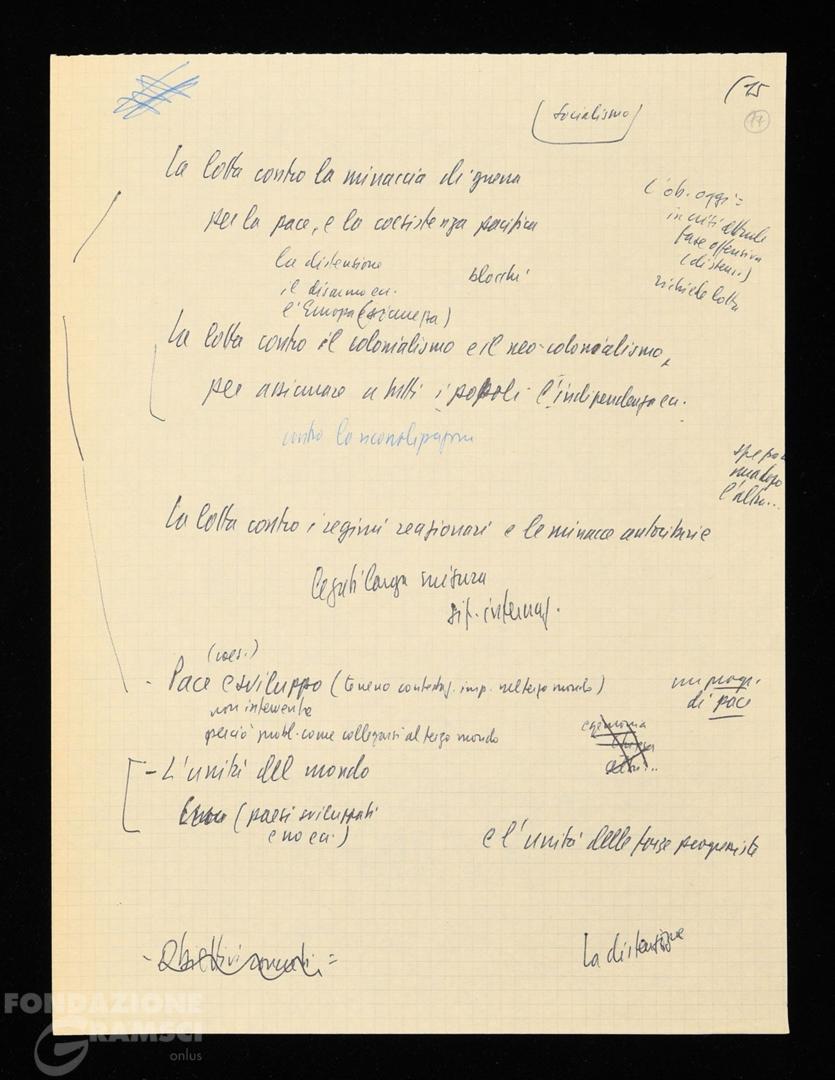 (15
17
(socialismo)
La lotta contro la minaccia di guerra
per la pace, e la coesistenza pacifica
la distensione
blocchi
il disarmo ec.
l'Europa (sicurezza)
L'ob. oggi =
fase offensiva
(disten.)
richiede lotta
La lotta contro il colonialismo e il neo-colonialismo,
per assicurare a tutti i popoli l'indipendenza ec.
contro la
l'altro...
La lotta contro i regimi reazionari e le minacce autoritarie
legati larga misura
sit. internaz.
(coes.)
- Pace e sviluppo (terreno contestaz. imp. nel terzo mondo)
non intervento
perciò probl. come collegarsi al terzo mondo
un progr.
di pace
egemonia
- L'unità del mondo
(paesi sviluppati
e no ec.)
e l'unità delle forze progressiste
- Obiettivi concreti =
La distensione
FONDAZIONE
GRAMSCI
onlus